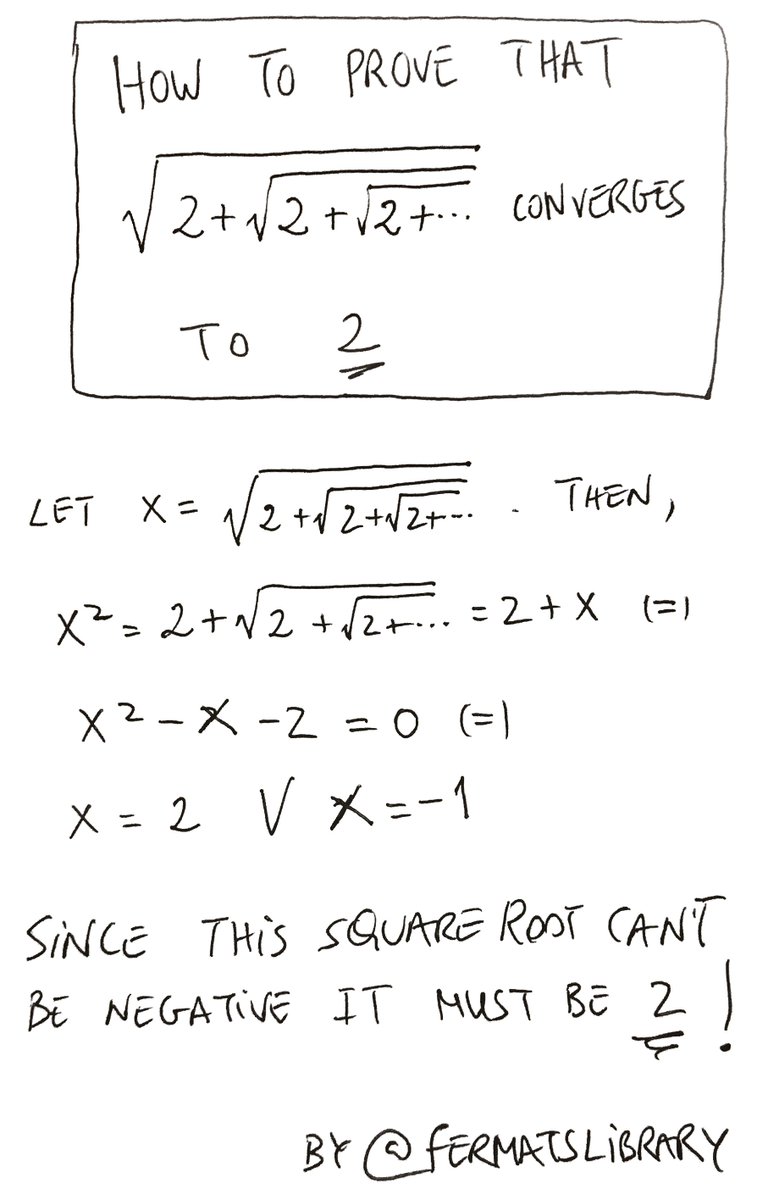 HOW TO PROVE THAT
√(2+√(2+√(2+⋯))) CONVERGES
TO 2
LET X = √(2+√(2+√(2+⋯))) . THEN,
X² = 2+√(2+√(2+⋯)) = 2+X (=)
X² - X - 2 = 0 (=)
X = 2 V X = -1
SINCE THIS SQUARE ROOT CAN'T
BE NEGATIVE IT MUST BE 2 !
BY @FERMATSLIBRARY